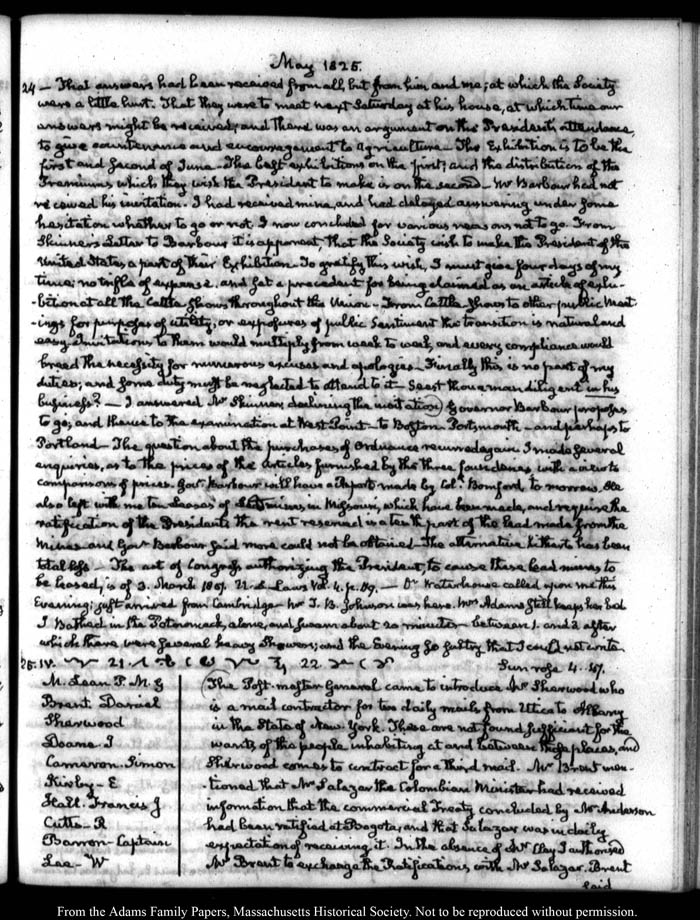 May 1825.
24 — That answers had been received from all, but from him and me; at which the Society
were a little hurt. That they were to meet next Saturday at his house, at which time our
answers might be received; and there was an argument on the President's attendance,
to give countenance and encouragement to Agriculture. The Exhibition is to be the
first and second of June — The best exhibitions on the first; and the distribution of the
Premiums which they wish the President to make is on the second — Mr Barbour had not
received his invitation. I had received mine, and had delayed answering under some
hesitation whether to go or not. I now concluded for various reasons not to go. From
Skinner's Letter to Barbour it is apparent, that the Society wish to make the President of the
United States a part of their Exhibition. To gratify this wish, I must give four days of my
time; no trifle of expense, and set a precedent for being claimed as an article of exhi-
-bition at all the Cattle shows throughout the Union — From Cattle-shows to other public Meet-
-ings for purposes of utility, or exposures of public Sentiment the transition is natural and
easy. Invitations to them would multiply from week to week, and every compliance would
breed the necessity for numerous excuses and apologies — Finally this is no part of my
duties; and some duty must be neglected to attend to it — Seest thou a man diligent in his
business? — I answered Mr Skinner declining the invitation. Governor Barbour proposes
to go, and thence to the examination at West-Point — to Boston Portsmouth — and perhaps to
Portland — The question about the purchases of Ordnance recurred again. I made several
enquiries, as to the prices of the Articles furnished by the three founderies with a view to
comparisons of prices. Govr Barbour will have a Report made by Coll Bomford to morrow. He
also left with me ten Leases of Lead mines in Missouri, which have been made, and require the
ratification of the President; the rent reserved is a tenth part of the lead made from the
Mines and Govr Barbour said more could not be obtained — The alternative hitherto has been
total loss — The act of Congress authorizing the President, to cause these lead mines to
be leased, is of 3. March 1807. U.S. Laws Vol. 4. p. 119. — Dr Waterhouse called upon me this
Evening; just arrived from Cambridge — Mr J. B. Johnson was here. Mrs Adams still keeps her bed
I Bathed in the Potowmack, alone, and swam about 20 minutes — between 1. and 2 after
which there were several heavy showers; and the Evening so sultry that I could not write.
25. IV. 21. 22. Sun rose 4. 47.
M. Lean P.M.G
Brent. Daniel
Sherwood
Doane. J
Cameron. Simon
Kirby — E
Hall. Francis J
Cutts — R
Barron — Captain
Lee — W
The Post-master General came to introduce Mr Sherwood who
is a mail contractor for two daily mails from Utica to Albany
in the State of New York. These are not found sufficient for the
wants of the people inhabiting at and between those places, and
Sherwood comes to contract for a third mail. Mr Brent men-
-tioned that Mr Salazar the Colombian Minister had received
information that the commercial Treaty concluded by Mr Anderson
had been ratified at Bogota, and that Salazar was in daily
expectation of receiving it. In the absence of Mr Clay I authorised
Mr Brent to exchange the Ratifications with Mr Salazar. Brent
said
From the Adams Family Papers, Massachusetts Historical Society. Not to be reproduced without permission.